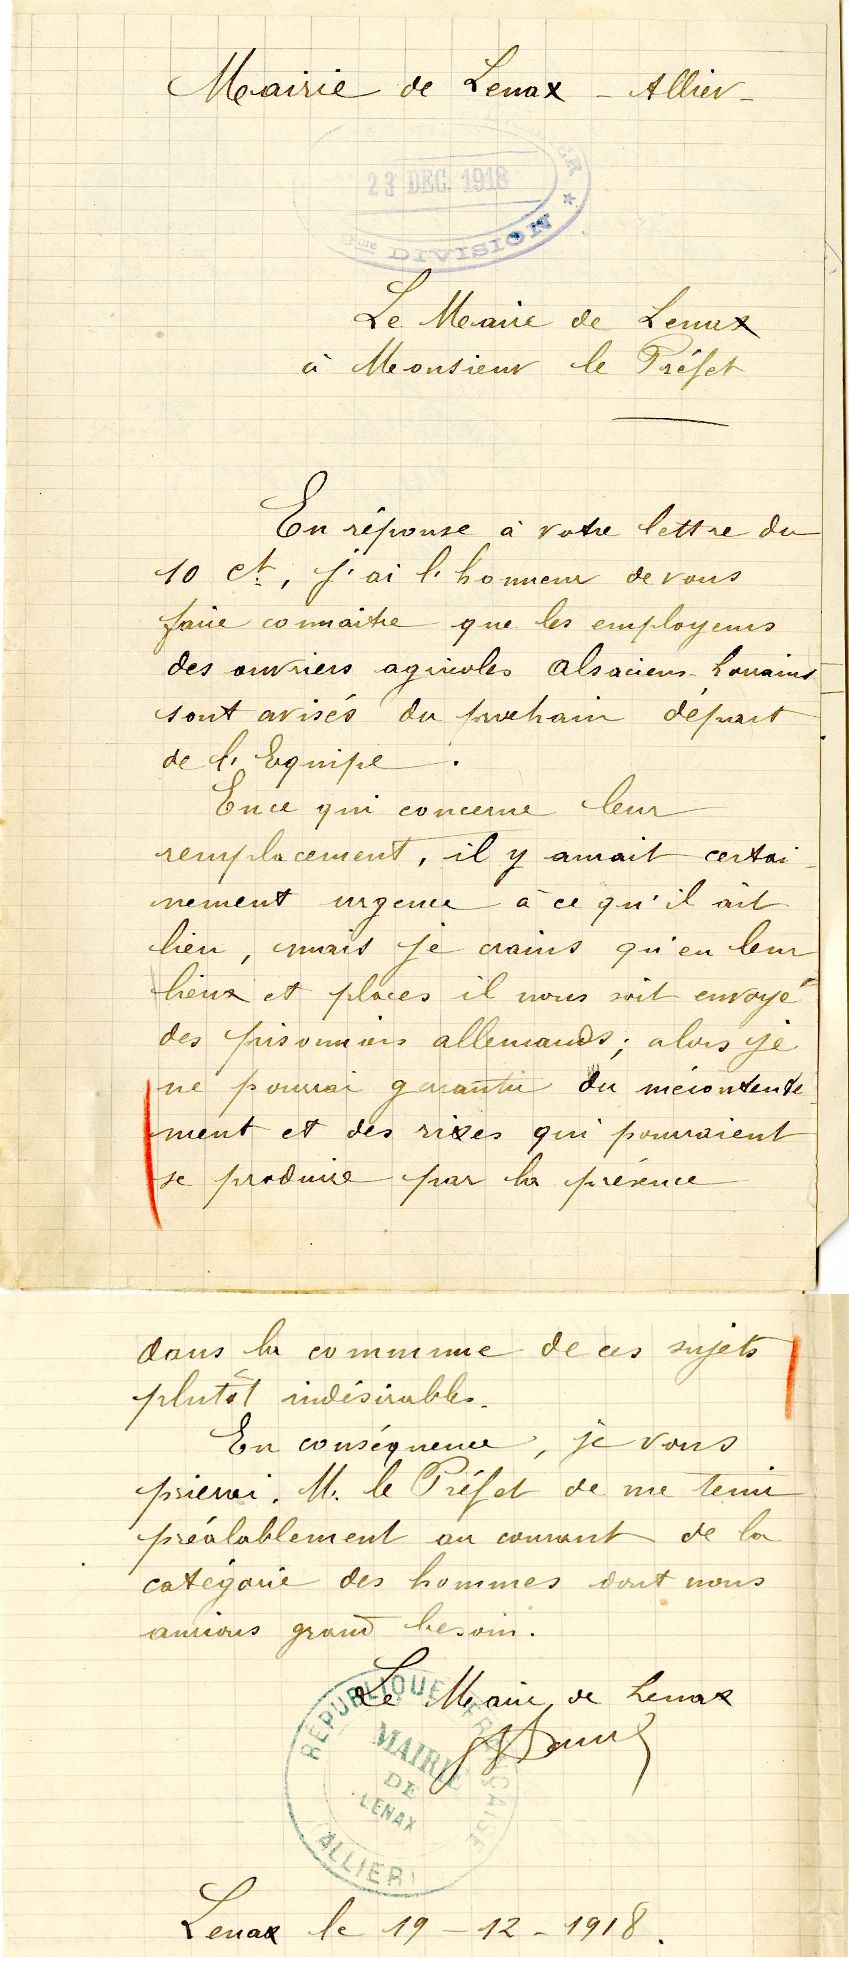 Mairie de Lenax - Allier -
23 DEC. 1918
DIVISION
Le Maire de Lenax
à Monsieur le Préfet
En réponse à votre lettre du
10 ct, j'ai l'honneur de vous
faire connaitre que les employeurs
des ouvriers agricoles Alsaciens-Lorrains
sont avisés du prochain départ
de l'Equipe.
En ce qui concerne leur
remplacement, il y aurait certai-
nement urgence à ce qu'il ait
lieu, mais je crains qu'en leur
lieux et places il nous soit envoyé
des prisonniers allemands; alors je
ne pourrai garantir du mécontente-
ment et des rixes qui pourraient
se produire par la présence
dans la commune de ces sujets
plutôt indésirables.
En conséquence, je vous
prierai, M. le Préfet de me tenir
préalablement au courant de la
catégorie des hommes dont nous
aurions grand besoin.
Le Maire de Lenax
RÉPUBLIQUE FRANÇAISE
MAIRIE
DE
LENAX
(ALLIER)
Lenax le 19-12-1918.